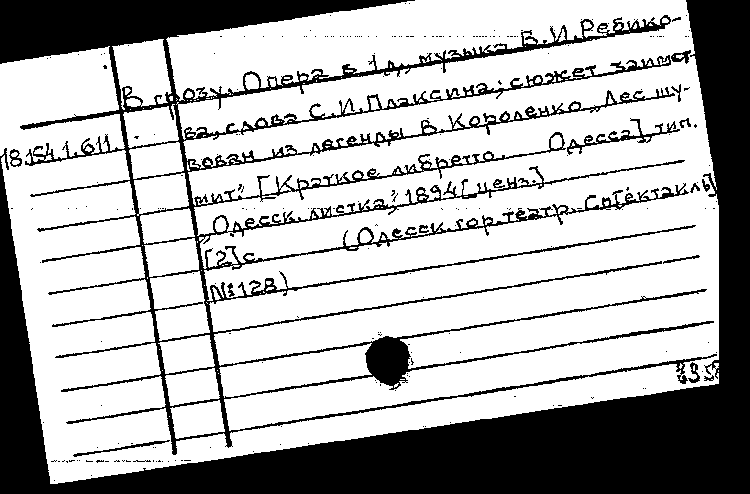 В грозу. Опера в 1 д., музыка В.И.Ребико-
ва, слова С.И.Плаксина; сюжет заимст-
18.154.1.611. вован из легенды В.Короленко „Лес шу-
мит." [Краткое либретто. Одесса], тип.
„Одесск. листка", 1894 [ценз.]
[2] с. (Одесск. гор. театр. Сп[ектакль]
№ 128).